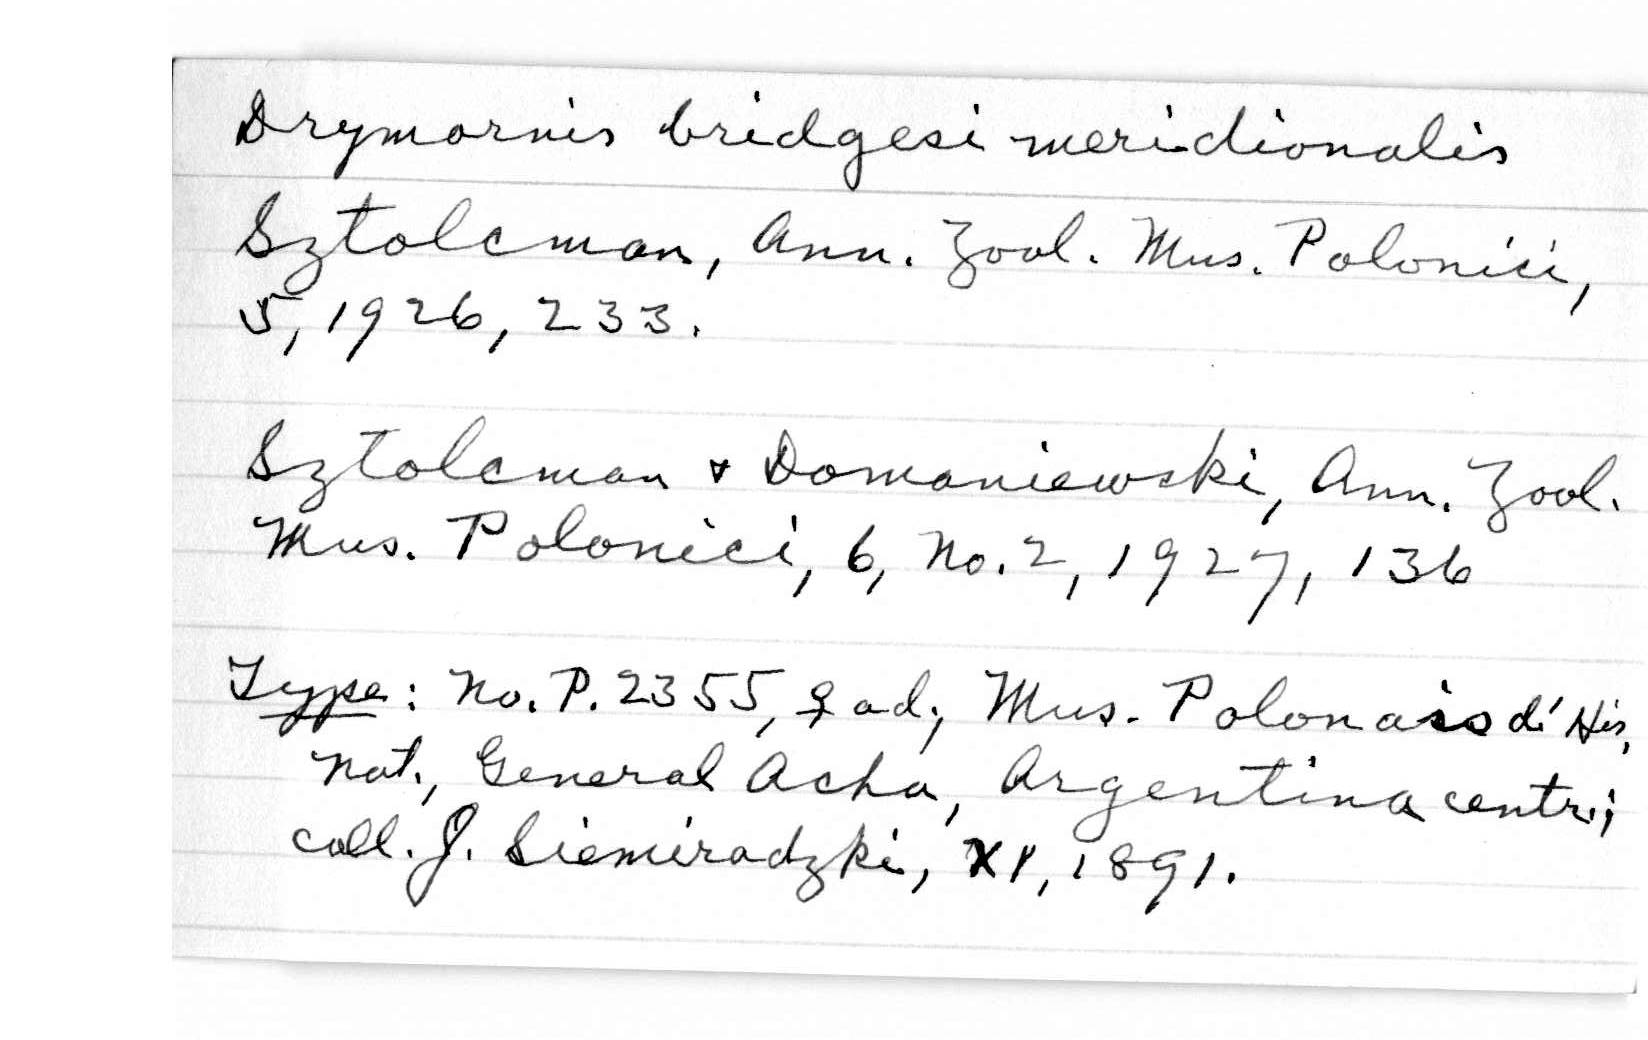 Drymornis bridgesi meridionalis
Sztolcman, Ann. Zool. Mus. Polonici,
5, 1926, 233.
Sztolcman & Domaniewski, Ann. Zool.
Mus. Polonici, 6, No. 2, 1927, 136
Type: No. P. 2355, ♀ ad; Mus. Polonais d'His,
Nat., General Acha, Argentina centr.;
coll. J. Siemiradzki, XI, 1891.